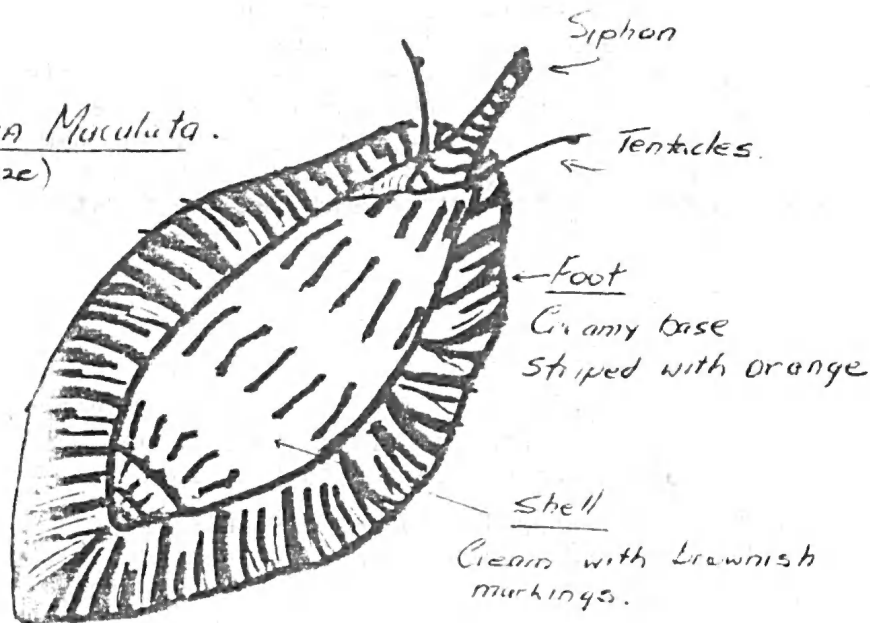 Siphon
Maculata.
Tentacles.
Foot
Creamy base
striped with orange
Shell
Cream with brownish
markings.